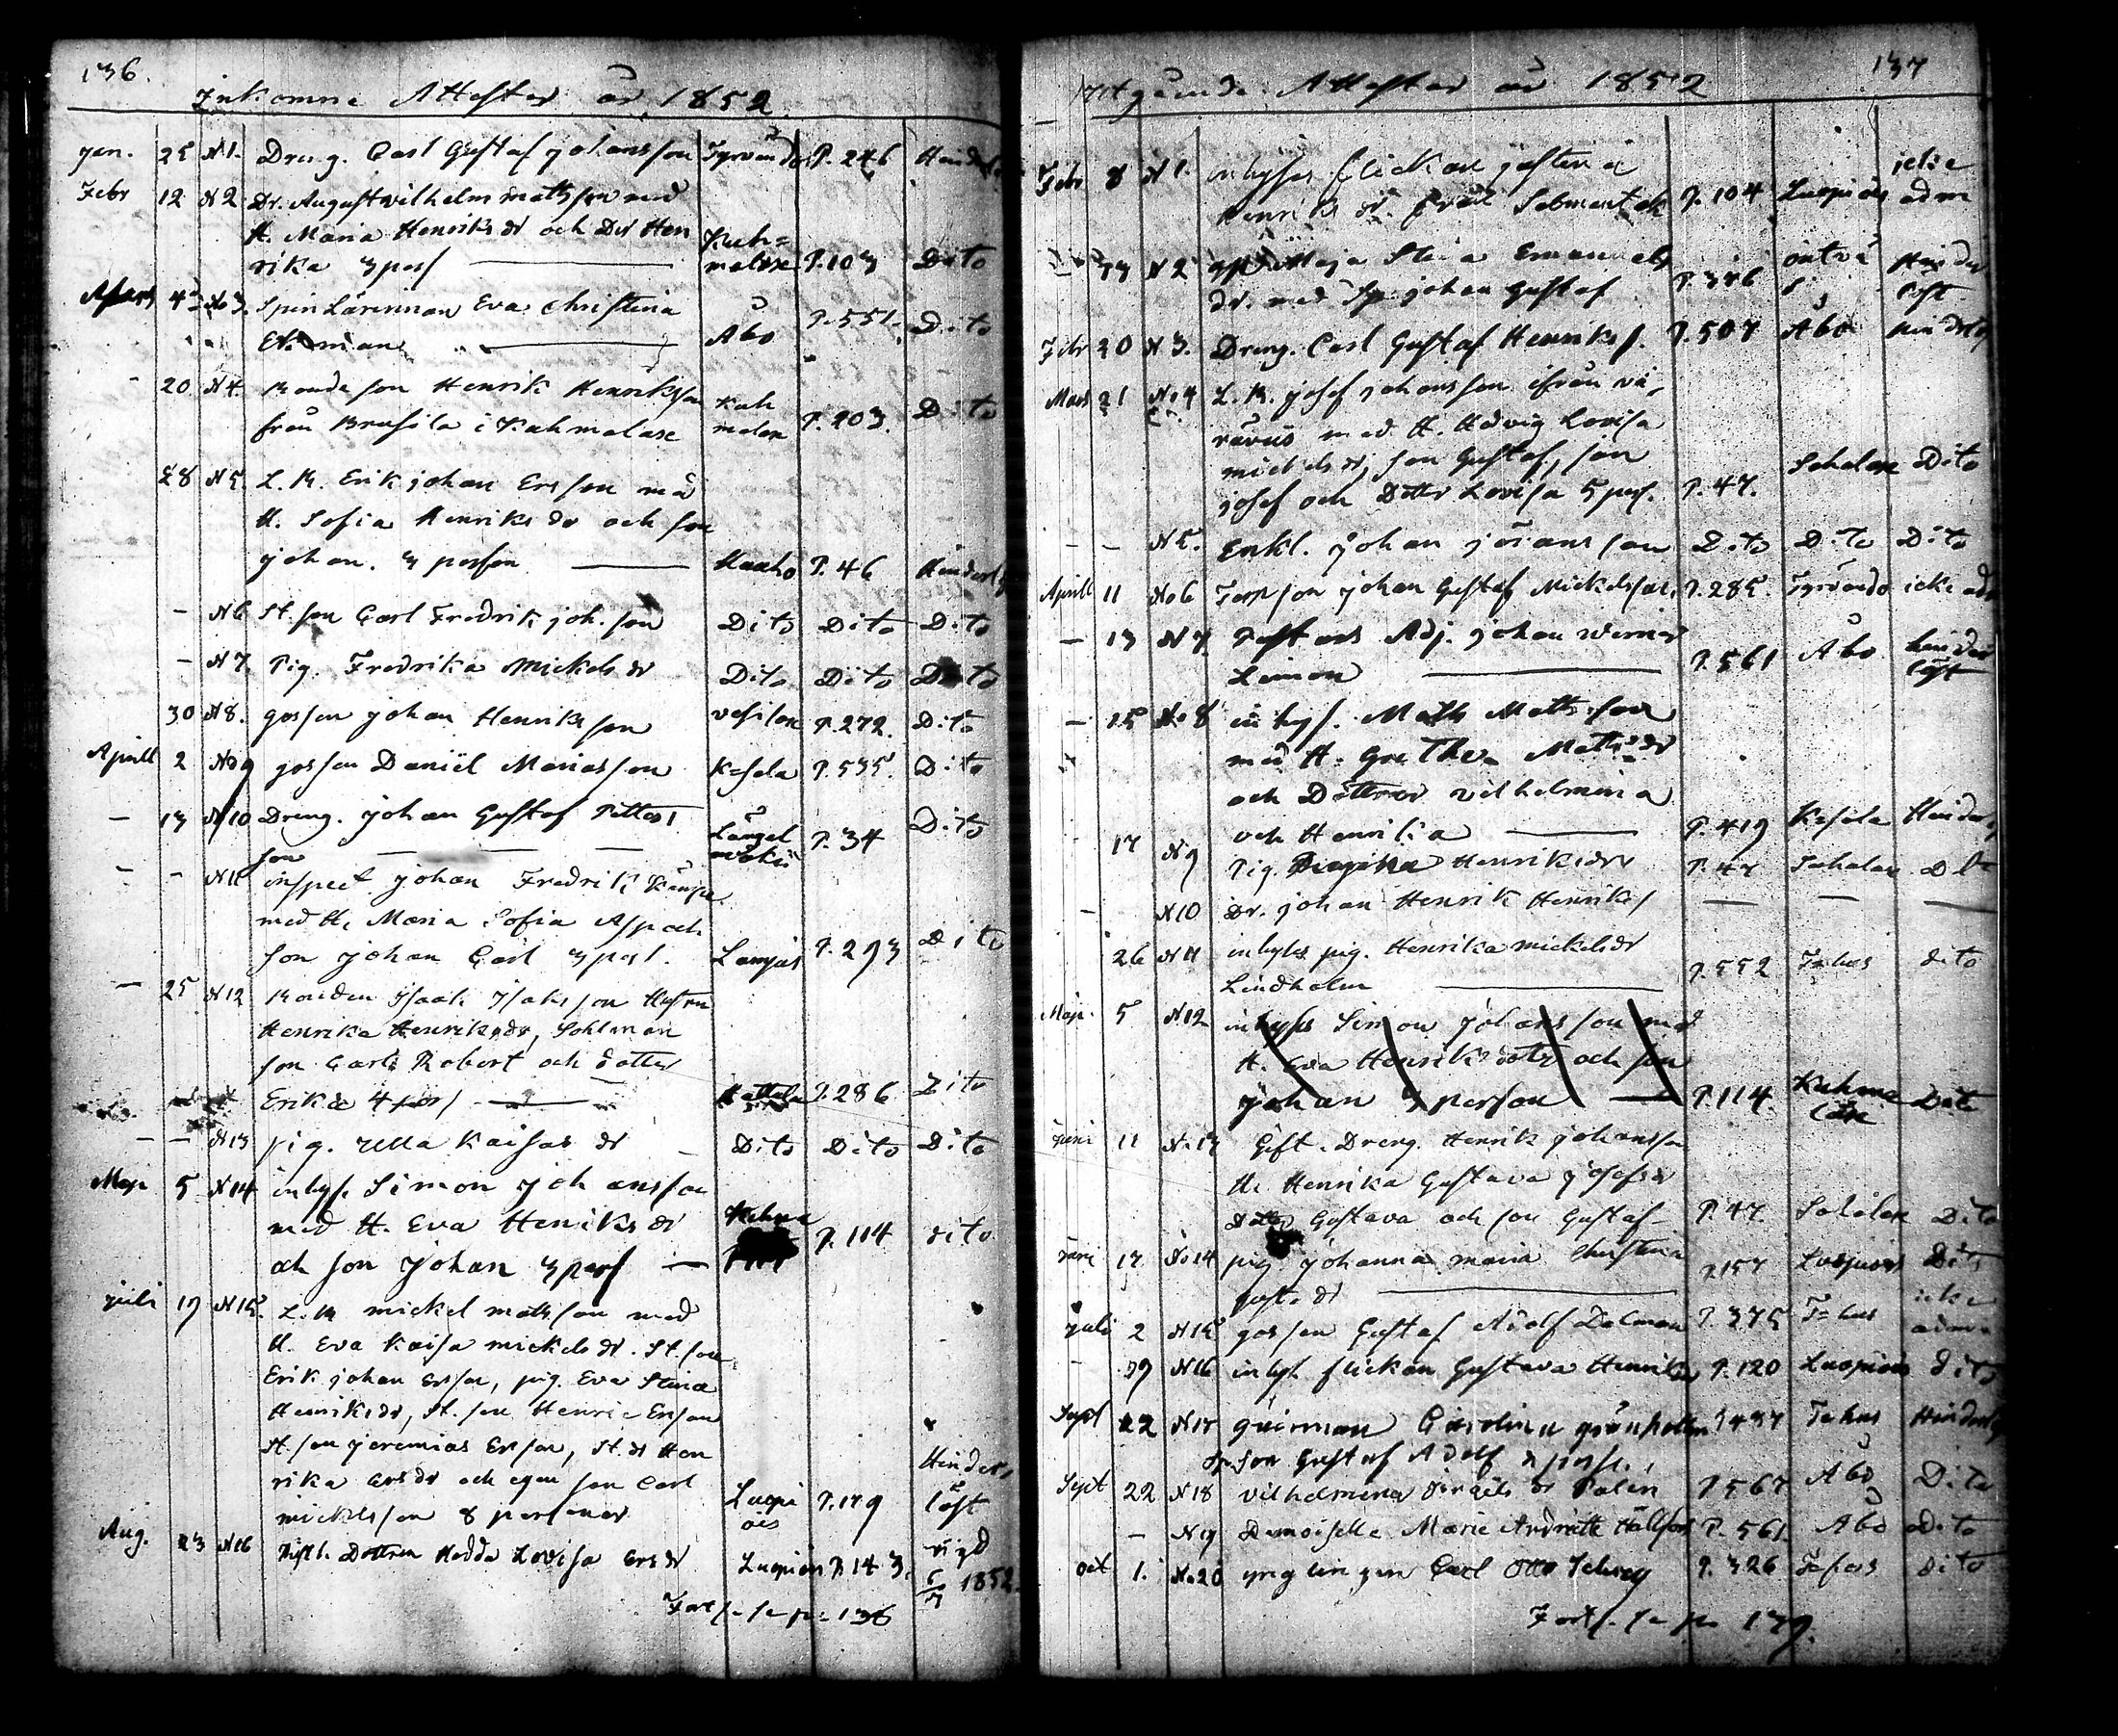 136.
Inkomne Attester år 1852
Jan. 25 N1. Dreng. Carl Gustaf Johansson Tyrvändö P. 246
Febr 12 N2 Dr. August vilhelm mattsson med
H. Maria Henriks dr och Dr Hen
rika 3 pers Kuh=malax P. 103 Dito
4 No 3. Spin Lärinnan Eva Christina
Ekman Åbo P. 551. Dito
20 N4. Bonde son Henrik Henriksson
från Brusila i Kuhmalax Kuhmalax P. 203. Dito
28 N5. L. B. Erik johan Ersson med
H. Sofia Henriks dr och son
johan. 3 person P. 46 Hinderl
N6 St. son Carl Fredrik joh. son Dito Dito Dito
N7. Pig. Fredrika Mickels dr Dito Dito Dito
30 N8. gossen johan Henriksson vesilax P. 272. Dito
Aprill 2 No9 gossen Daniel Mariasson P. 535. Dito
13 N10 Dreng. johan Gustaf Petters
son Längelmäki P. 34 Dito
N11 inspect. johan Fredrik
med H. Maria Sofia Asp och
son johan Carl 3 pers. P. 293 Dito
25 N12 Bonden Isaak Isaksson Hustru
Henrika Henriksdr, Sohlman
son Carl Robert och dotter
Erika 4 pers P. 286 Dito
N13 pig. Ulla Kaisas dr Dito Dito Dito
Maji 5 N14 inhys. Simon Johansson
med H. Eva Henriks dr
och son Johan 3 pers P. 114 dito
juli 19 N15. L. B mickel mattsson med
H. Eva Kaisa mickels dr. St. son
Erik johan Ersson, pig. Eva Stina
Henriksdr, St. son Henric Ersson
St. son jeremias Ersson, St. dr Hen
rika Ersdr och egen son Carl
mickelsson 8 personer Luopiois P. 179 Hinderslöst
Aug. 23 N16 Dottren Hedda Lovisa Ersdr Luopiois P. 143. 1852.
Forts. se p. 136
137
Utgående Attester år 1852
Febr 8 N1. inhyses flickan justina
Henriks dr. P. 104 Luopiois icke adm
13 N2 Maja Stina Emanuels
dr. med Sp. johan Gustaf P. 346 Hinderlöst
Febr 20 N3. Dreng. Carl Gustaf Henrikss. P. 507 Åbo hindersl
Mars 21 No4 L. B. josef johansson ifrån
med H. Hedvig Lovisa
mickels dr, son Gustaf, son
josef och Dotter Lovisa 5 pers. P. 47. Sahalax Dito
N5. Enkl. Johan jöransson Dito Dito Dito
Aprill 11 No6 Torp son johan Gustaf Mickelsson P. 285. Tyrvändö icke adm
13 N7. Pastors Adj. johan Werner
Limon P. 561 Åbo hinderlöst
15 No8 inhys. Matts Mattsson
med H. Gretha Matts dr
och Döttrar vilhelmina
och Henrika P. 419
17 N9 Pig. Henriksdr P. 47 Sahalax Dito
N10 Dr. johan Henrik Henriks
26 N11 inhyses pig. Henrika mickelsdr
Lindholm P. 552 dito
Maji 5 N12 inhyses Simon johansson med
H. Eva Henriks dotter och son
johan 3 person P. 114. Kuhmalax Dito
juni 11 No13 Gift. Dreng. Henrik johansson
H. Henrika Gustava josefsdr
Dotter Gustava och son Gustaf P. 47. Sahalax Dito
juni 17 No14 pig johanna maria Christina
dr P 157 Luopiois Dito
juli 2 N15 gossen Gustaf Adolf Dalman P. 375 icke adm
29 N16 inhys. flickan Gustava Henriks P. 120 Luopiois dito
Sept 22 N17 qvinnan Carolina grönholm P 437 Hindersl
Sp. son Gustaf Adolf 2 pers.
Sept 22 N18 vilhelmina dr Palén P 567 Åbo Dito
N19 Demoiselle Marie P. 561. Åbo Dito
oct 1. No20 ynglingen Carl Otto P. 326 dito
Forts. se p. 139.